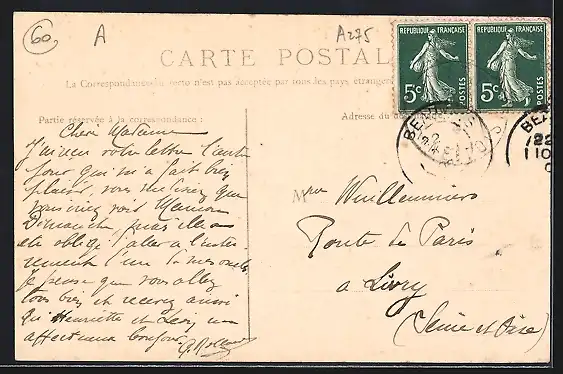 60
A
A275
CARTE POSTAL
La Correspondance au recto n'est pas acceptée par tous les pays étrangers
RÉPUBLIQUE FRANÇAISE
5c POSTES
RÉPUBLIQUE FRANÇAISE
5c POSTES
Partie réservée à la correspondance :
Adresse du
Chère Madame
J'ai eu votre lettre l'autre
jour qui m'a fait bien
plaisir, vous me disez que
vous voir Maman
Dimanche, mais elle a
été obligé d'aller à l'enter-
rement d'un de mes oncles
Je pense que vous allez
tous bien et recevez aussi
qu'Henriette et un
affectueux bonjour.
M
Route de Paris
a Livry
(Seine et Oise)